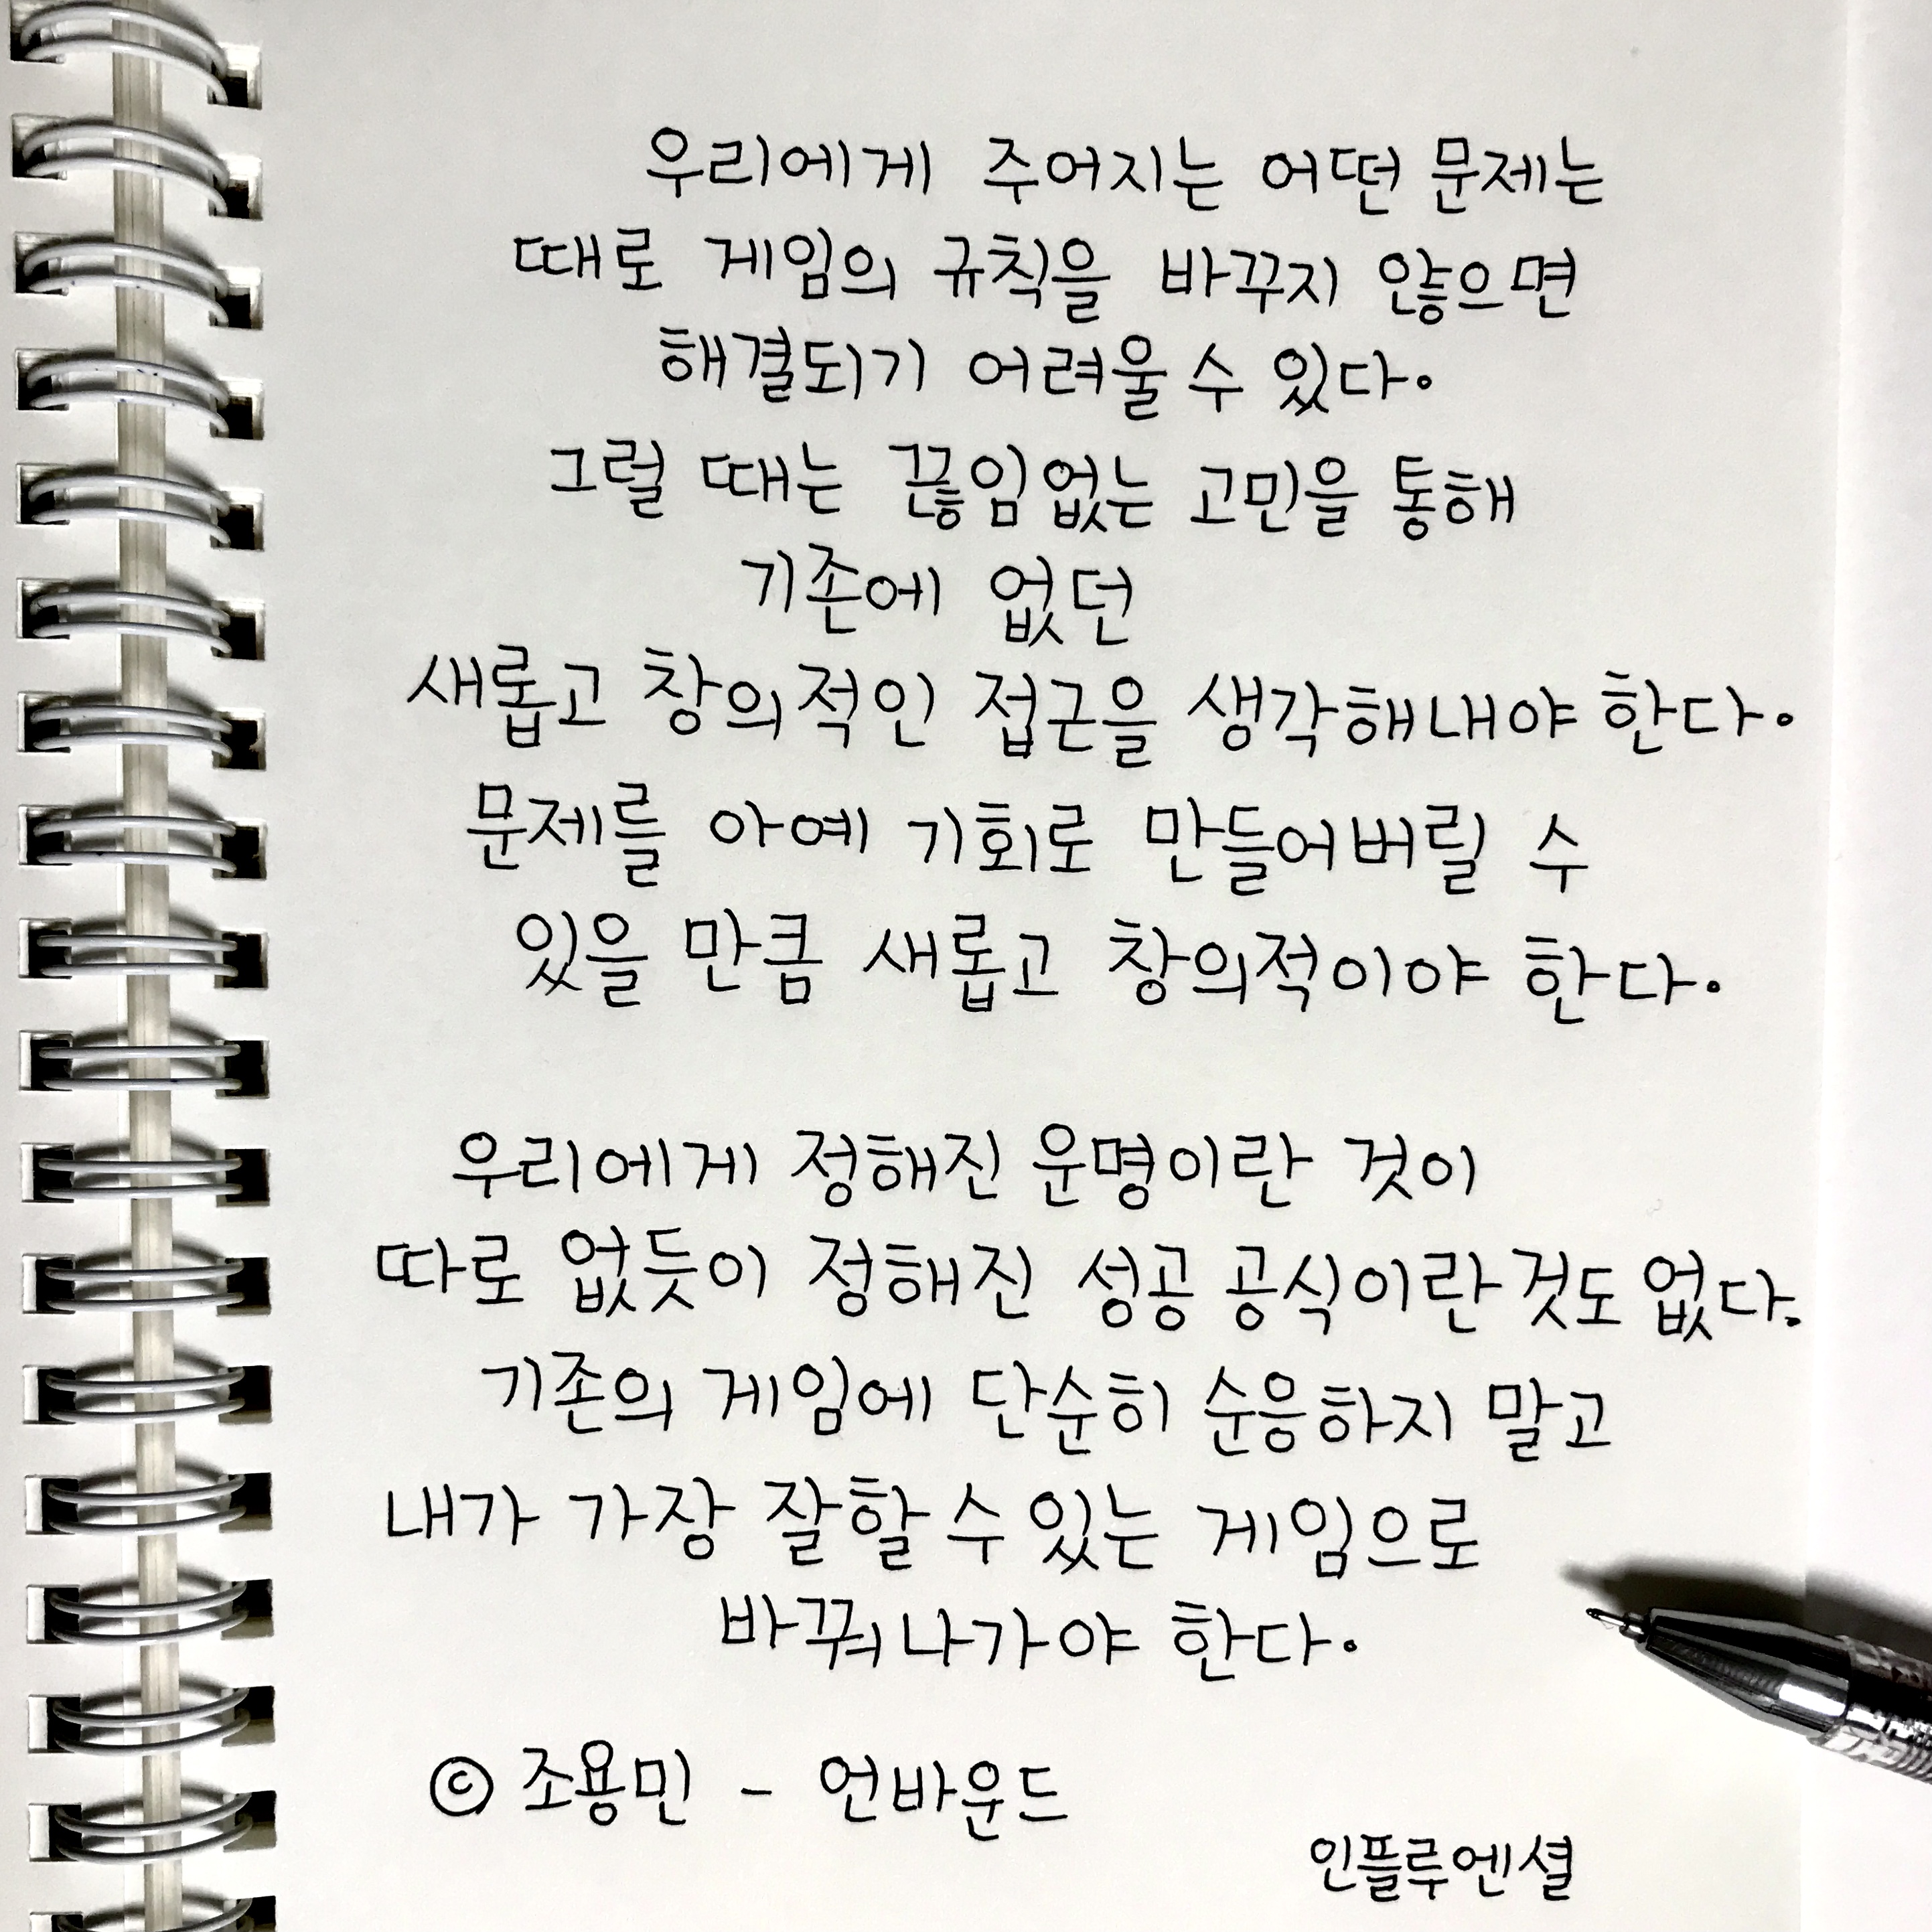 우리에게 주어지는 어떤 문제는
때로 게임의 규칙을 바꾸지 않으면
해결되기 어려울 수 있다.
그럴 때는 끊임없는 고민을 통해
기존에 없던
새롭고 창의적인 접근을 생각해내야 한다.
문제를 아예 기회로 만들어버릴 수
있을 만큼 새롭고 창의적이야 한다.
우리에게 정해진 운명이란 것이
따로 없듯이 정해진 성공 공식이란 것도 없다.
기존의 게임에 단순히 순응하지 말고
내가 가장 잘할 수 있는 게임으로
바꿔나가야 한다.
© 조용민 - 언바운드
인플루엔셜